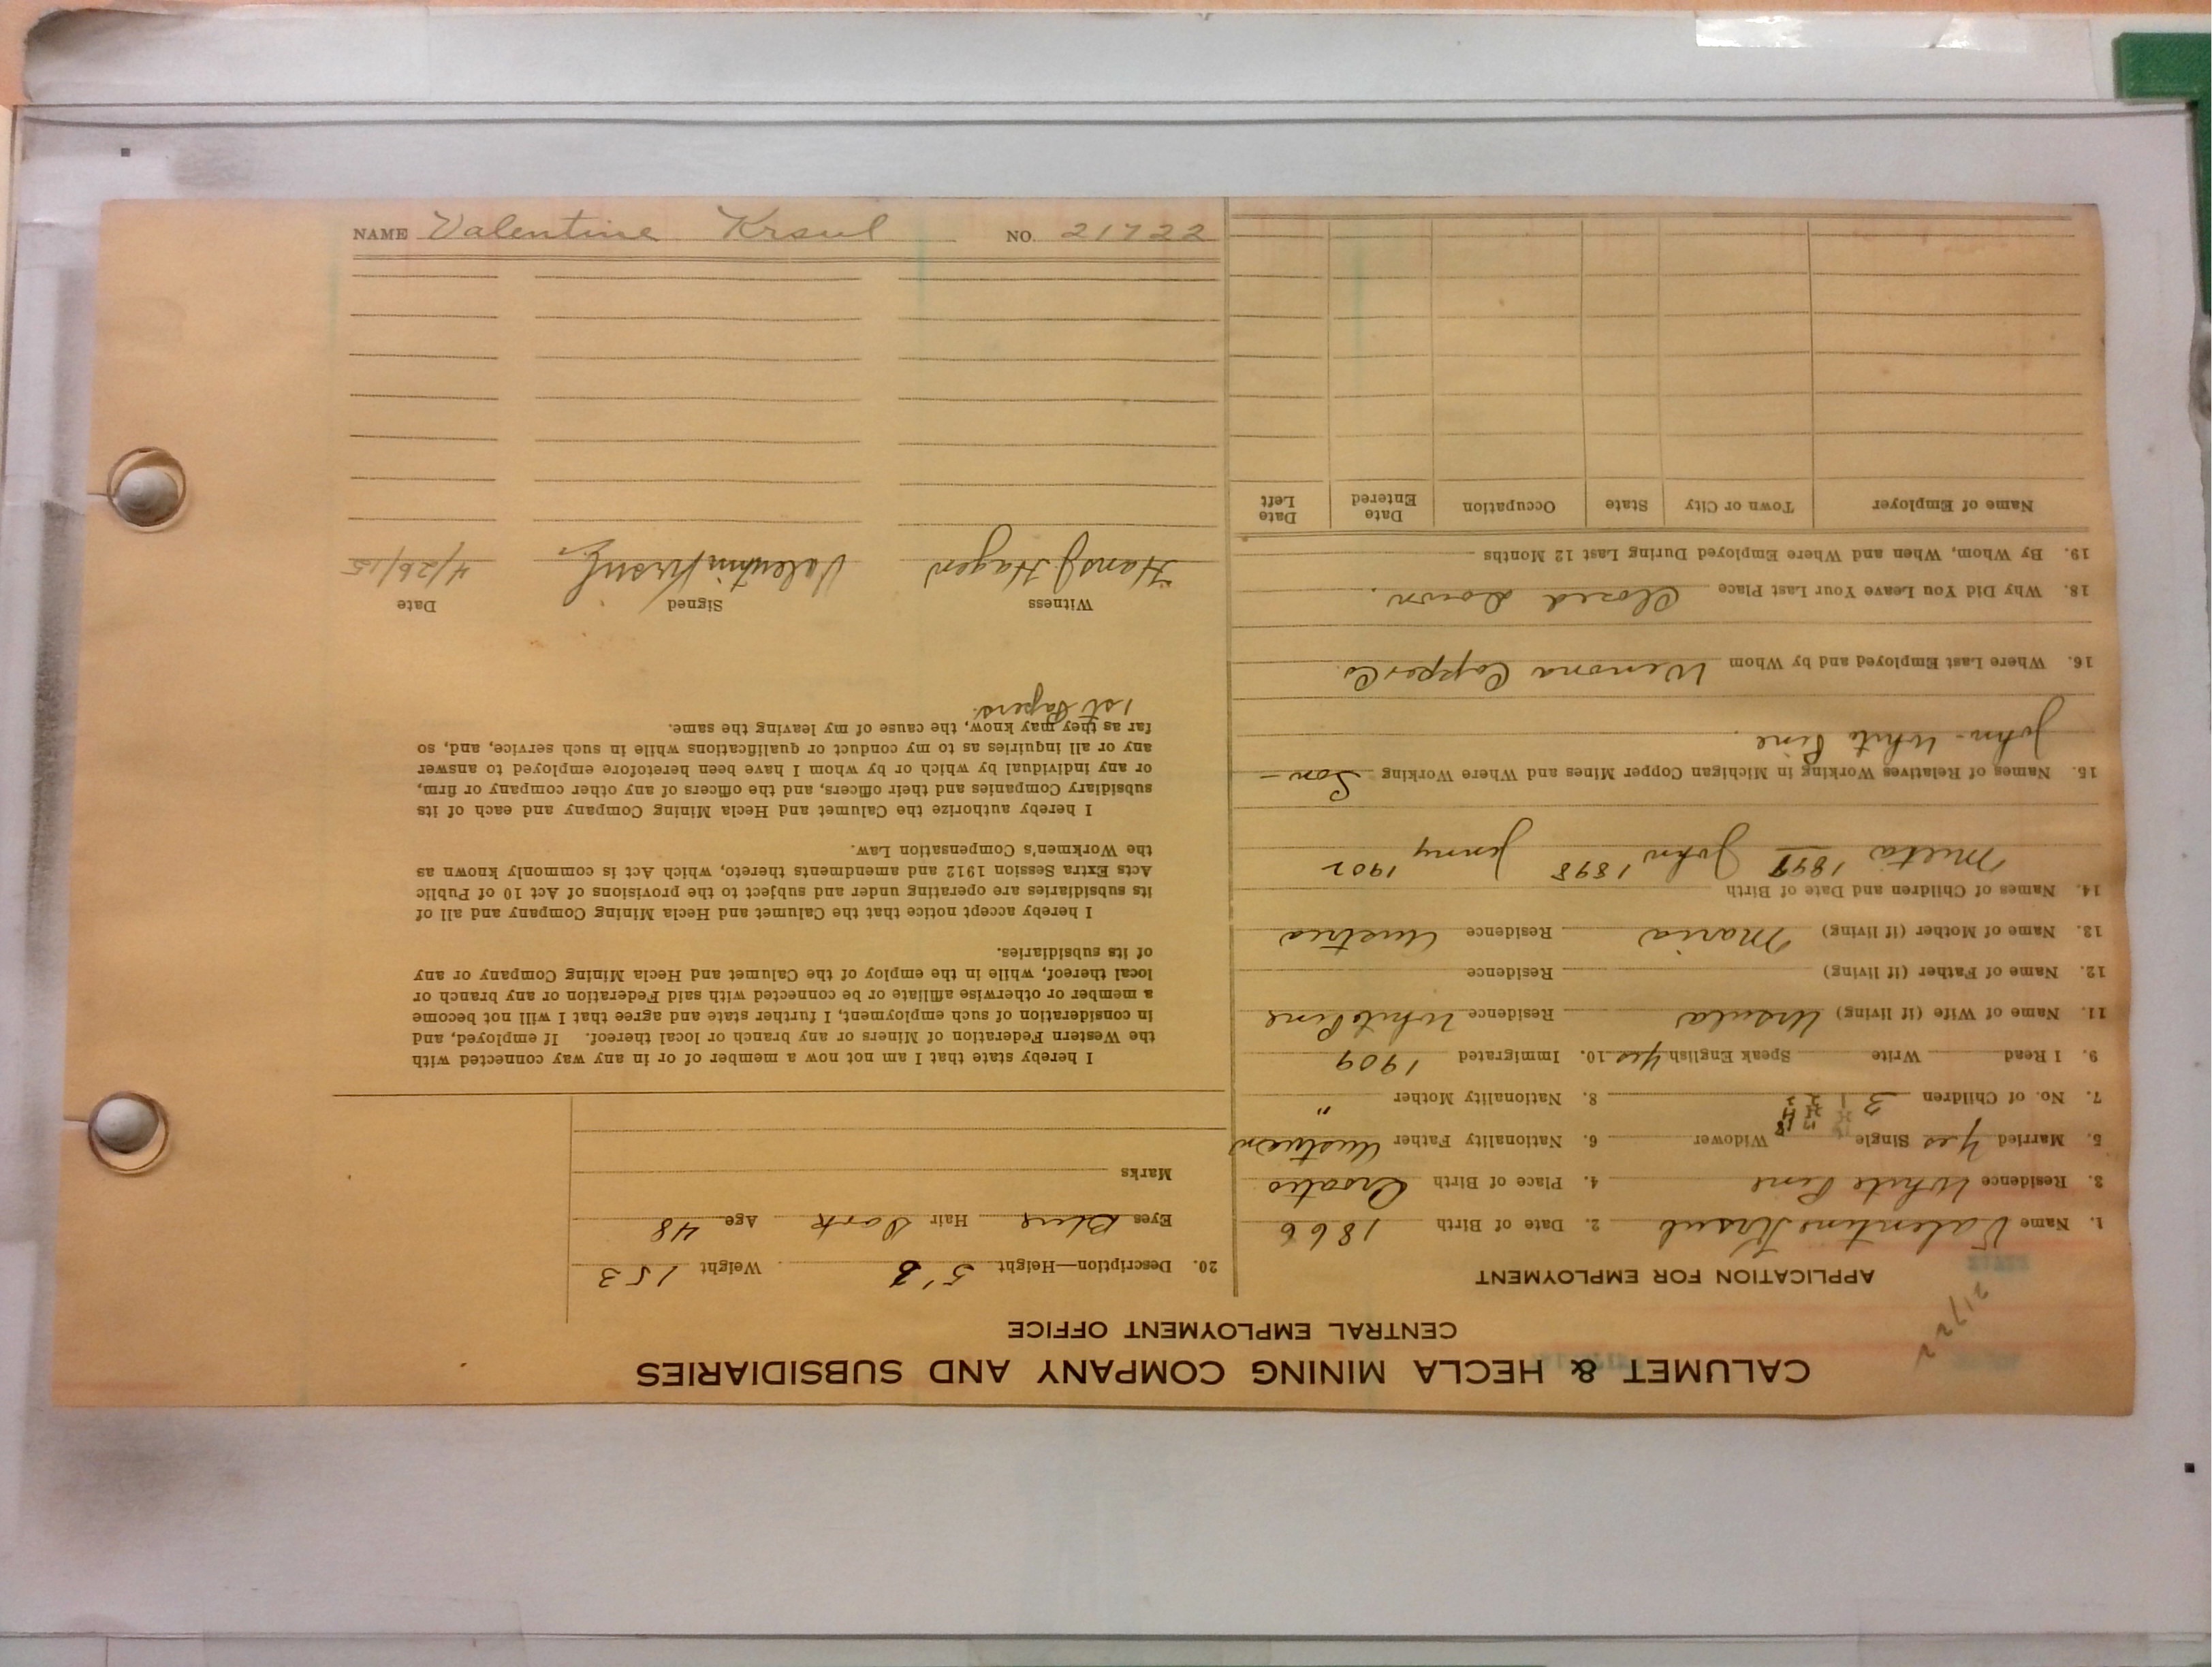 CALUMET & HECLA MINING COMPANY AND SUBSIDIARIES
CENTRAL EMPLOYMENT OFFICE
21722
APPLICATION FOR EMPLOYMENT
1. Name Valentine Krsul 2. Date of Birth 1866
3. Residence White Pine 4. Place of Birth Croatia
5. Married Yes Single Widower 6. Nationality Father Austrian
7. No. of Children 3 8. Nationality Mother "
9. I Read Write Speak English Yes 10. Immigrated 1909
11. Name of Wife (if living) Ursula Residence White Pine
12. Name of Father (if living) Residence
13. Name of Mother (if living) Maria Residence Austria
14. Names of Children and Date of Birth
Milta 1897 John 1898 Jenny 1902
15. Names of Relatives Working in Michigan Copper Mines and Where Working Son -
John - White Pine.
16. Where Last Employed and by Whom Winona Copper Co.
18. Why Did You Leave Your Last Place Closed down.
19. By Whom, When and Where Employed During Last 12 Months
Name of Employer Town or City State Occupation Date Entered Date Left
20. Description—Height 5'8 Weight 153
Eyes Blue Hair Dark Age 48
Marks
I hereby state that I am not now a member of or in any way connected with
the Western Federation of Miners or any branch or local thereof. If employed, and
in consideration of such employment, I further state and agree that I will not become
a member or otherwise affiliate or be connected with said Federation or any branch or
local thereof, while in the employ of the Calumet and Hecla Mining Company or any
of its subsidiaries.
I hereby accept notice that the Calumet and Hecla Mining Company and all of
its subsidiaries are operating under and subject to the provisions of Act 10 of Public
Acts Extra Session 1912 and amendments thereto, which Act is commonly known as
the Workmen's Compensation Law.
I hereby authorize the Calumet and Hecla Mining Company and each of its
subsidiary Companies and their officers, and the officers of any other company or firm,
or any individual by which or by whom I have been heretofore employed to answer
any or all inquiries as to my conduct or qualifications while in such service, and, so
far as they may know, the cause of my leaving the same.
1st Papers.
Witness Signed Date
Hans J Hagen Valentin Krsul 4/26/15
NAME Valentine Krsul NO. 21722